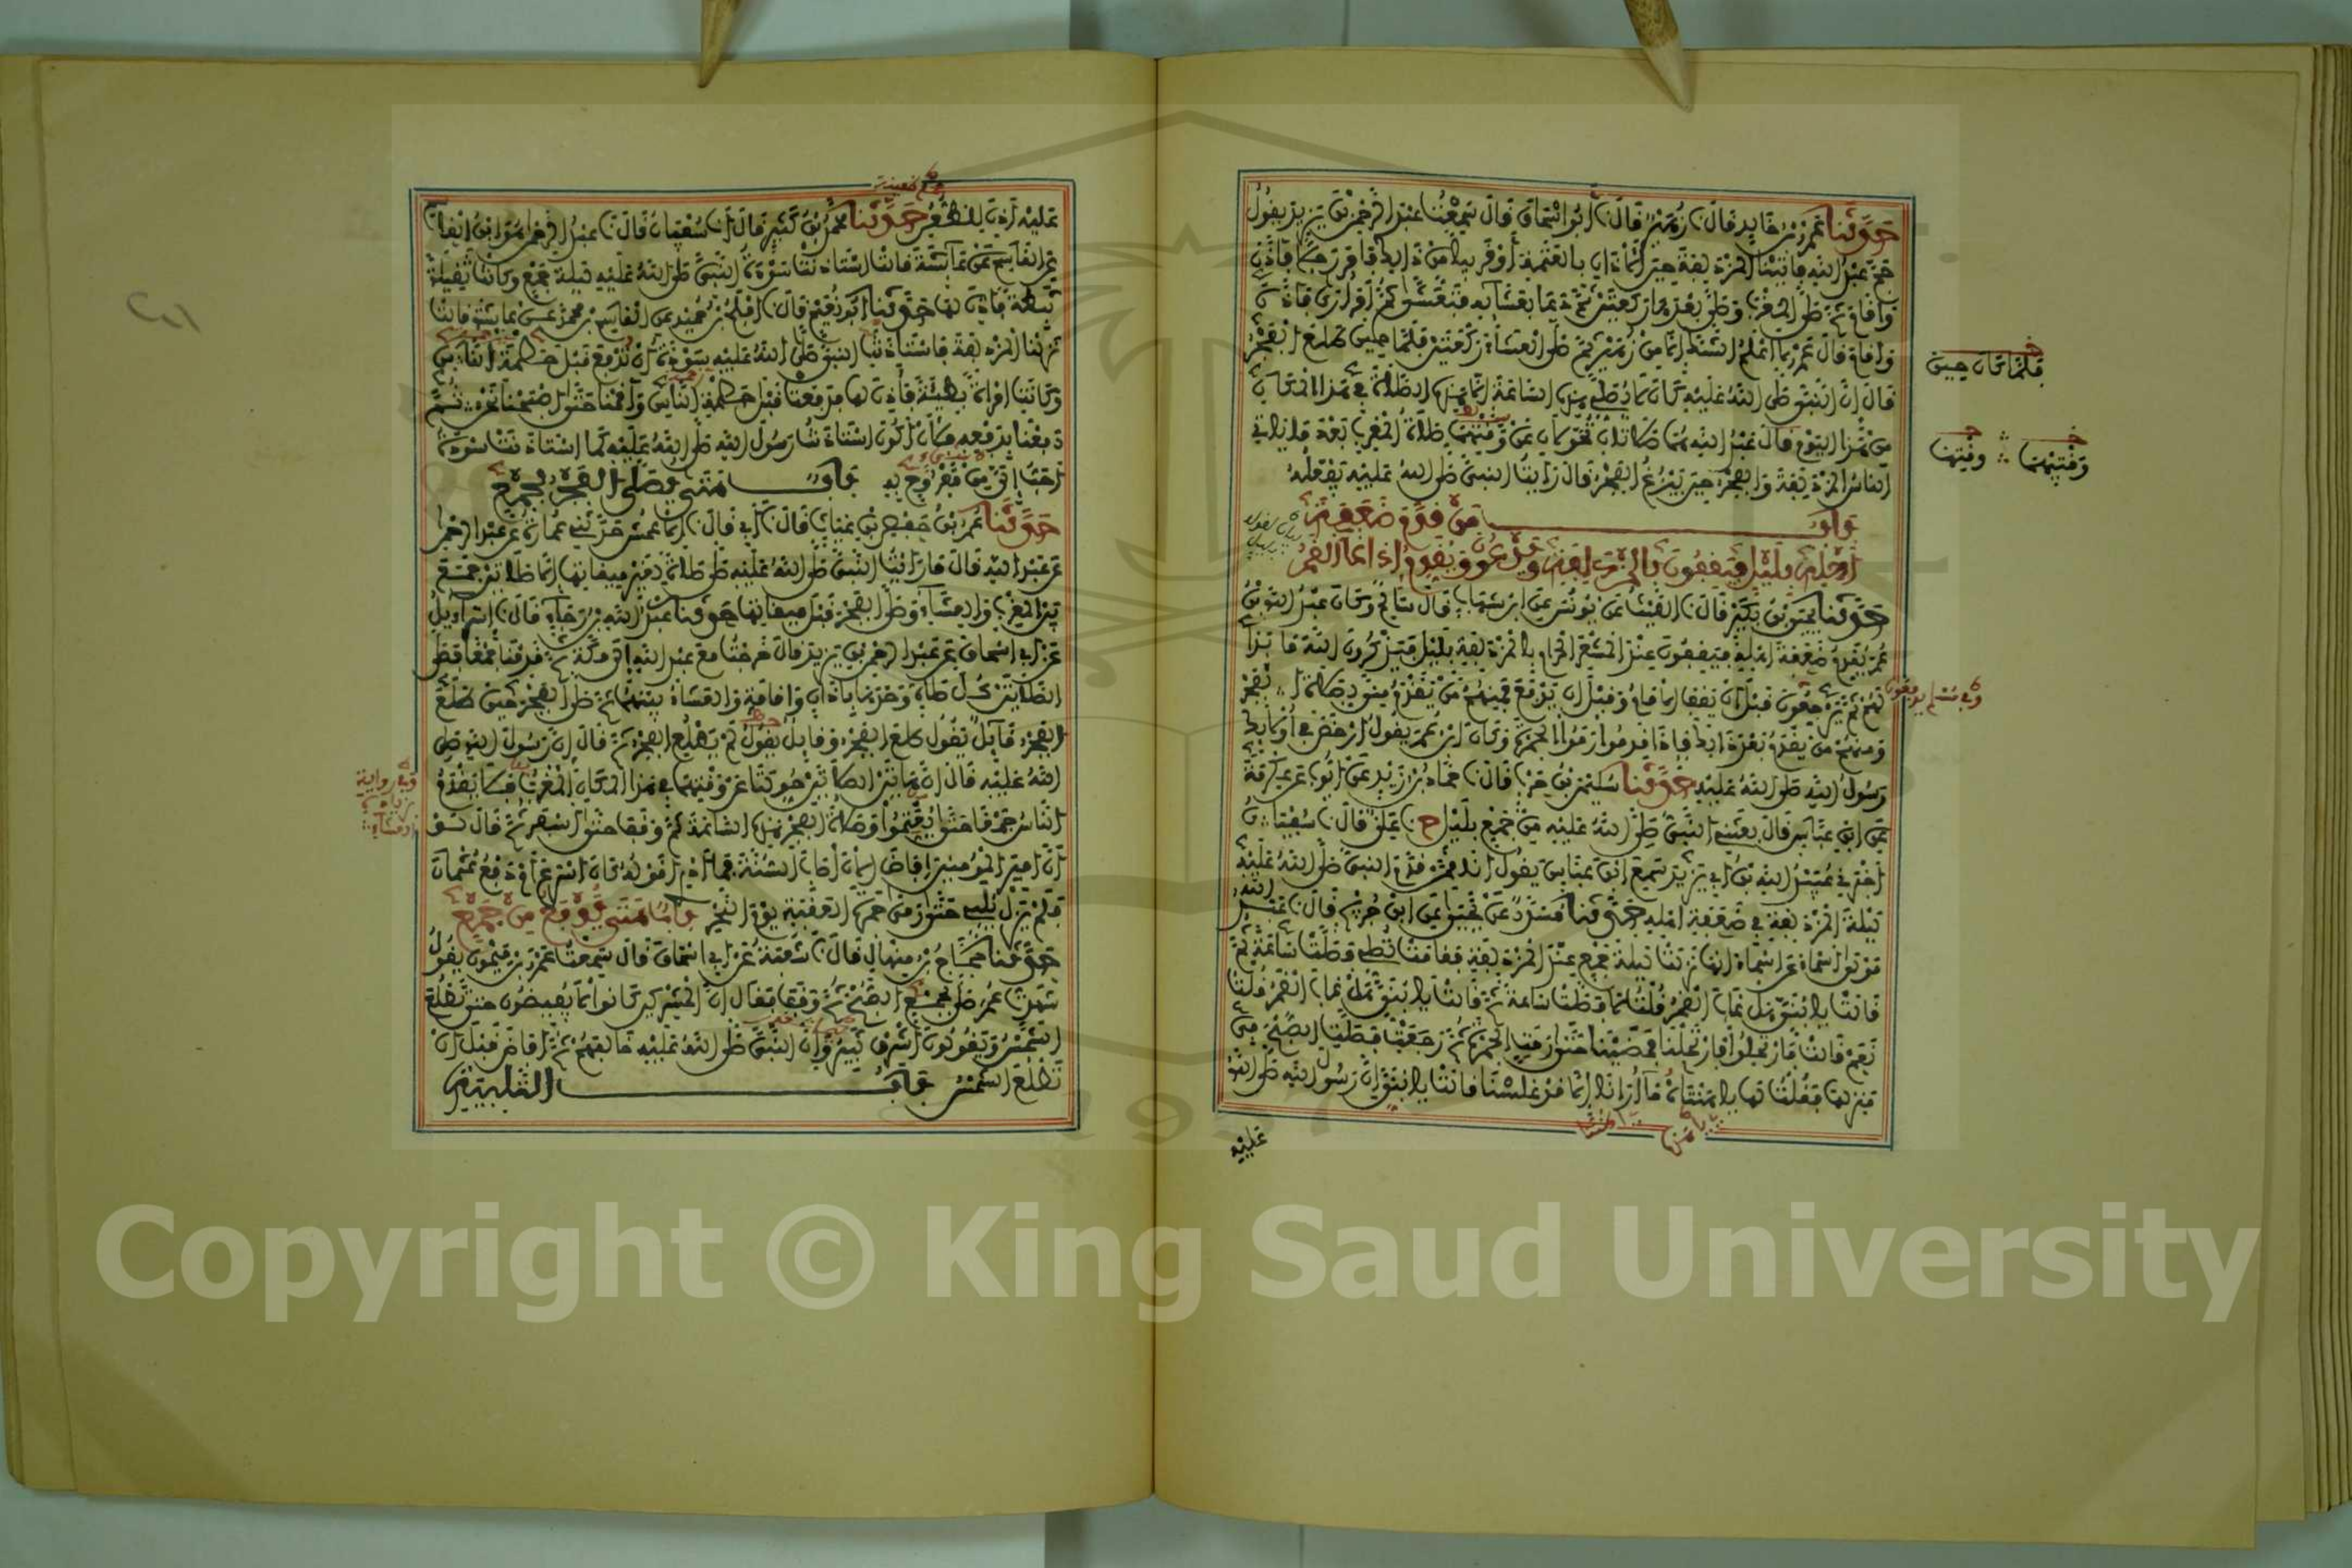 حدثنا عمرو بن خالد قال نا زهير قال نا أبو إسحاق قال سمعت عبد الرحمن بن يزيد يقول
حج عبد الله فأتينا المزدلفة حين الأذان بالعتمة أو قريبا من ذلك فأمر رجلا فأذن
وأقام ثم صلى المغرب وصلى بعدها ركعتين ثم دعا بعشائه فتعشى ثم أمر أرى فأذن
وأقام قال عمرو لا أعلم الشك إلا من زهير ثم صلى العشاء ركعتين فلما حين طلع الفجر
قال إن النبي صلى الله عليه كان لا يصلي هذه الساعة إلا هذه الصلاة في هذا المكان
من هذا اليوم قال عبد الله هما صلاتان تحولان عن وقتهما صلاة المغرب بعد ما يأتي
الناس المزدلفة والفجر حين يبزغ الفجر قال رأيت النبي صلى الله عليه يفعله
باب من قدم ضعفة
أهله بليل فيقفون بالمزدلفة ويدعون ويقدم إذا غاب القمر
حدثنا يحيى بن بكير قال نا الليث عن يونس عن ابن شهاب قال سالم وكان عبد الله بن
عمر يقدم ضعفة أهله فيقفون عند المشعر الحرام بالمزدلفة بليل فيذكرون الله ما بدا
لهم ثم يرجعون قبل أن يقف الإمام وقبل أن يدفع فمنهم من يقدم منى لصلاة الفجر
ومنهم من يقدم بعد ذلك فإذا قدموا رموا الجمرة وكان ابن عمر يقول أرخص في أولئك
رسول الله صلى الله عليه حدثنا سليمن بن حرب قال نا حماد بن زيد عن أيوب عن عكرمة
عن ابن عباس قال بعثني النبي صلى الله عليه من جمع بليل ح نا علي قال نا سفيان
أخبرني عبيد الله بن أبي يزيد سمع ابن عباس يقول أنا ممن قدم النبي صلى الله عليه
ليلة المزدلفة في ضعفة أهله حدثنا مسدد عن يحيى عن ابن جريج قال نا عبد الله
مولى أسماء عن أسماء أنها نزلت ليلة جمع عند المزدلفة فقامت تصلي فصلت ساعة ثم
قالت يا بني هل غاب القمر قلت لا فصلت ساعة ثم قالت يا بني هل غاب القمر قلت
نعم قالت فارتحلوا فارتحلنا فمضينا حتى رمت الجمرة ثم رجعت فصلت الصبح في
منزلها فقلت لها يا هنتاه ما أرانا إلا قد غلسنا قالت يا بني إن رسول الله صلى الله
عليه
فلما كان حين
وقتيهما ∴ وقتها
وفي مسلم يدفعون
عليه أذن للظعن حدثنا محمد بن كثير قال أنا سفيان قال نا عبد الرحمن هو ابن القاسم
عن القاسم عن عائشة قالت استأذنت سودة النبي صلى الله عليه ليلة جمع وكانت ثقيلة
ثبطة فأذن لها حدثنا أبو نعيم قال نا أفلح بن حميد عن القاسم بن محمد عن عائشة قالت
نزلنا المزدلفة فاستأذنت النبي صلى الله عليه سودة أن تدفع قبل حطمة الناس
وكانت امرأة بطيئة فأذن لها فدفعت قبل حطمة الناس وأقمنا حتى أصبحنا نحن ثم
دفعنا بدفعه فلأن أكون استأذنت رسول الله صلى الله عليه كما استأذنت سودة
أحب إلي من مفروح به باب متى يصلي الفجر بجمع
حدثنا عمر بن حفص بن غياث قال نا أبي قال نا الأعمش حدثني عمارة عن عبد الرحمن
عن عبد الله قال ما رأيت النبي صلى الله عليه صلى صلاة لغير ميقاتها إلا صلاتين جمع
بين المغرب والعشاء وصلى الفجر قبل ميقاتها حدثنا عبد الله بن رجاء قال نا إسرائيل
عن أبي إسحاق عن عبد الرحمن بن يزيد قال خرجت مع عبد الله إلى مكة ثم قدمنا جمعا فصلى
الصلاتين كل صلاة وحدها بأذان وإقامة والعشاء بينهما ثم صلى الفجر حين طلع
الفجر قائل يقول طلع الفجر وقائل يقول لم يطلع الفجر ثم قال إن رسول الله صلى
الله عليه قال إن هاتين الصلاتين حولتا عن وقتهما في هذا المكان المغرب فلا يقدم
الناس جمعا حتى يعتموا وصلاة الفجر هذه الساعة ثم وقف حتى أسفر ثم قال لو
أن أمير المؤمنين أفاض الآن أصاب السنة فما أدري أقوله كان أسرع أم دفع عثمان
فلم يزل يلبي حتى رمى جمرة العقبة يوم النحر باب متى يدفع من جمع
حدثنا حجاج بن منهال قال نا شعبة عن أبي إسحاق قال سمعت عمرو بن ميمون يقول
شهدت عمر صلى بجمع الصبح ثم وقف فقال إن المشركين كانوا لا يفيضون حتى تطلع
الشمس ويقولون أشرق ثبير وإن النبي صلى الله عليه خالفهم ثم أفاض قبل أن
تطلع الشمس باب التلبية
وفي رواية
زيادة
والعشاء
Copyright © King Saud University
1957